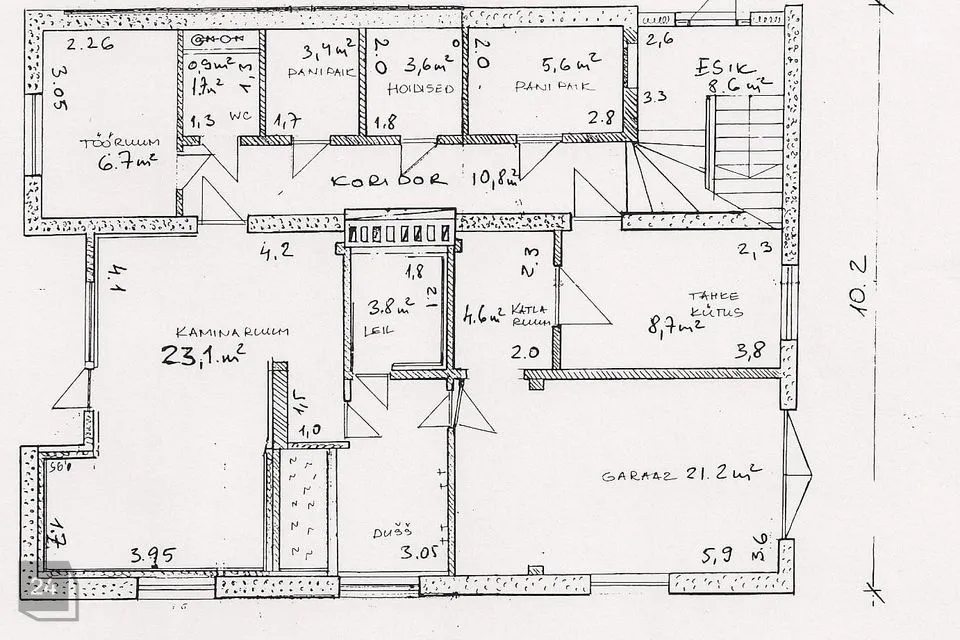 2.26
3.05
TÖÖRUUM
6.7m²
0,9m²
1.7m²
1,3
WC
3,4m²
PANIPAIK
1,7
2.0
3,6m²
HOIDISED
1.8
2.0
5,6m²
PANIPAIK
2.8
2,6
ESIK
8.6m²
3.3
KORIDOR 10,8m²
4,2
4.1
KAMINARUUM
23,1.m²
1,8
2.1
3.8m²
LEIL
2.3
4.6m² KATLA
RUUM
2.0
2,3
TAHKE
KÜTUS
8,7m²
3,8
10.2
1,0
GARAAZ 21.2m²
1.7
3.95
DUŠŠ
3.05
5,9
3.6
24